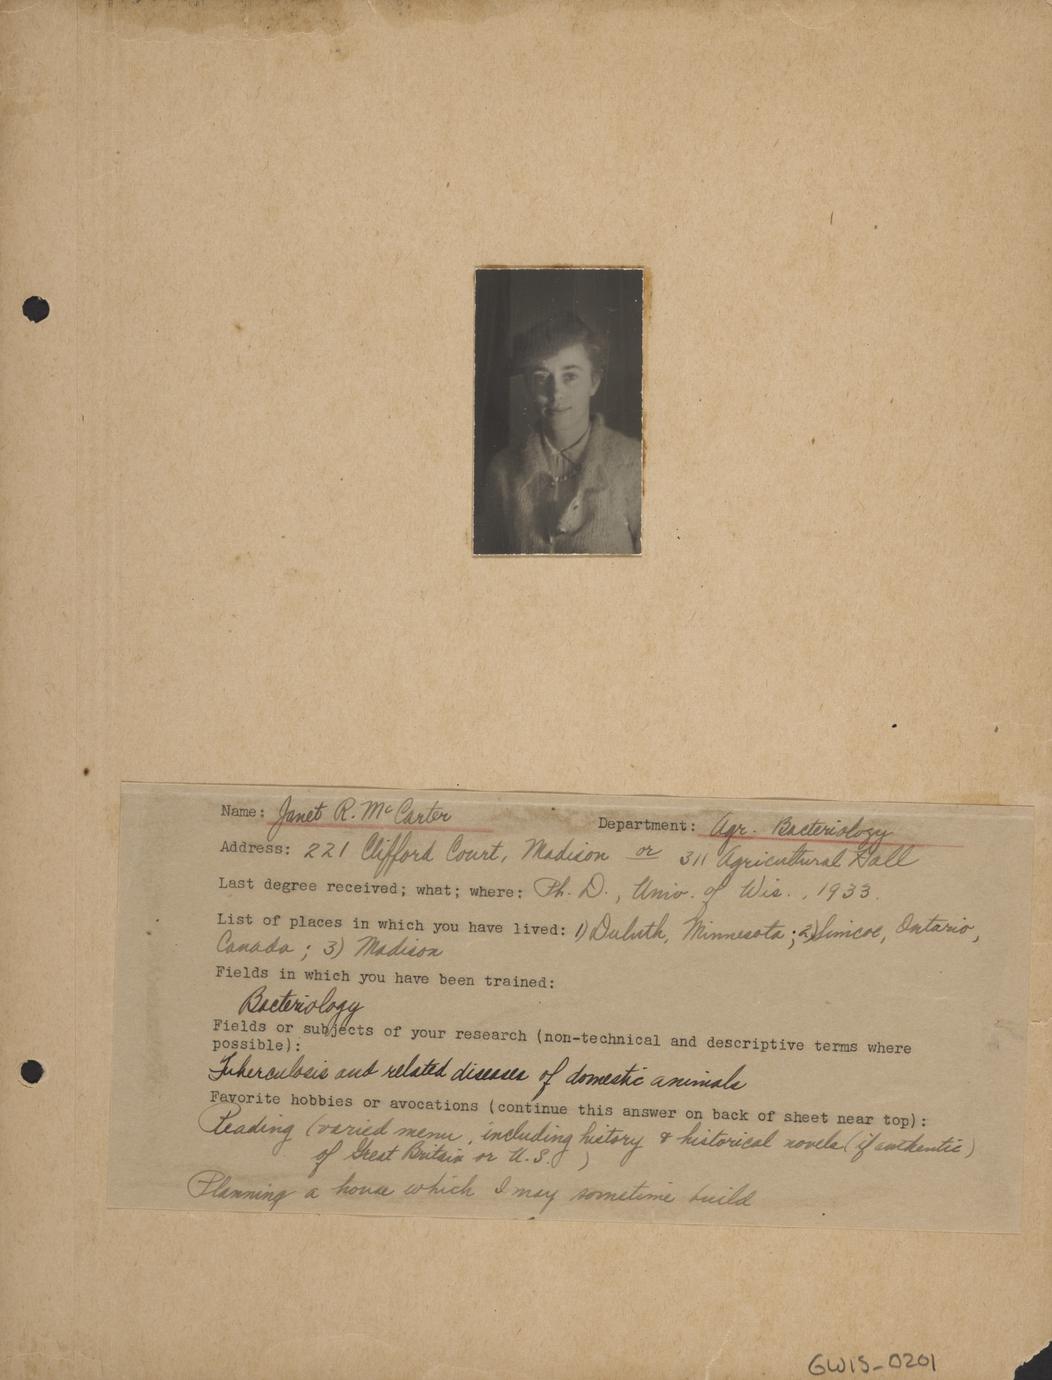 Name: Janet R. McCarter Department: Agr. Bacteriology
Address: 221 Clifford Court, Madison or 311 Agricultural Hall
Last degree received; what; where: Ph. D., Univ. of Wis., 1933.
List of places in which you have lived: 1) Duluth, Minnesota; 2) Simcoe, Ontario,
Canada; 3) Madison
Fields in which you have been trained:
Bacteriology
Fields or subjects of your research (non-technical and descriptive terms where
possible):
Tuberculosis and related diseases of domestic animals
Favorite hobbies or avocations (continue this answer on back of sheet near top):
Reading (varied menu, including history & historical novels (if authentic)
of Great Britain or U.S. )
Planning a house which I may sometime build
GWIS-0201